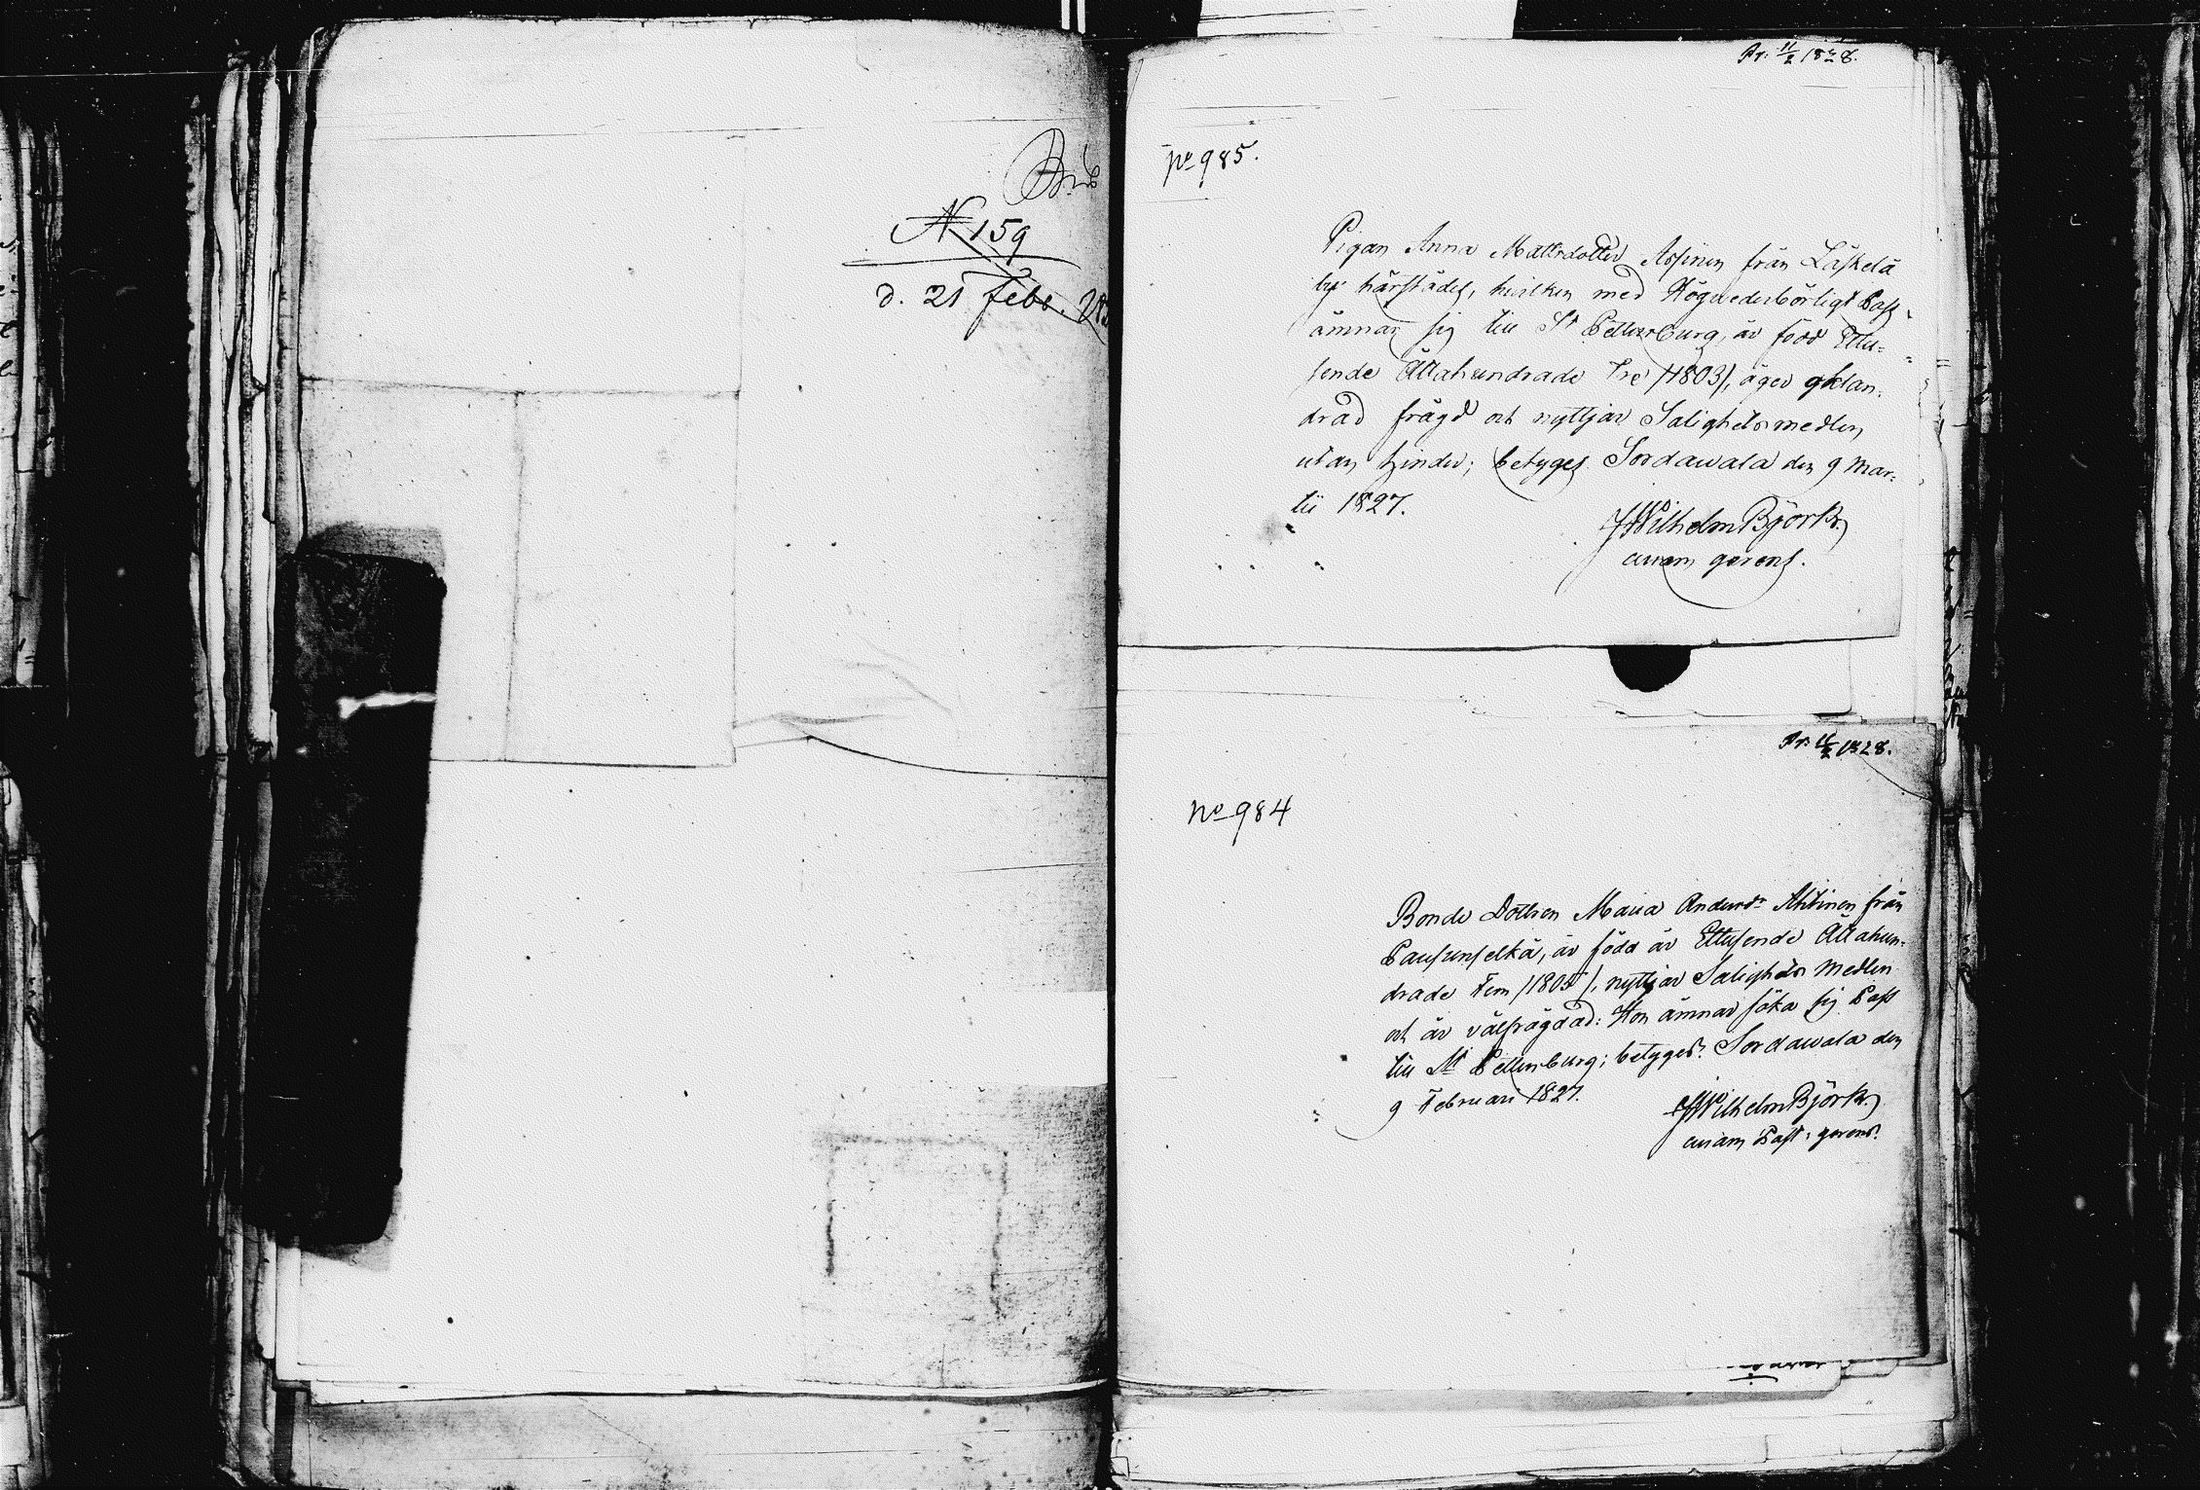 N 159
d. 21 Febr.
Pr. 11/2 1828.
No 985.
Pigan Anna Mattsdotter from Läskelä
by härstädes, hvilken med Högvederbörligt Pass
ämnar sig till St Pettersburg, är född Ettu-
sende Åttahundrade Tre /1803/, äger oklan-
drad frägd och nyttjar Salighetsmedlen
utan hinder; betyges Sordawala den 9 Mar-
tii 1827.
JWilhelm Björk
curam gerens.
Pr. 11/2 1828.
No 984
Bonde Dottren Maria Andersdr Ahtinen från
Pausunselkä, är född år Ettusende Åttahun-
drade Fem /1805/, nyttjar Salighets Medlen
och är välfrägdad: Hon ämnar söka sig Pass
till St Pettersburg; betyges. Sordawala den
9 Februari 1827.
JWilhelm Björk
curam Past. gerens.